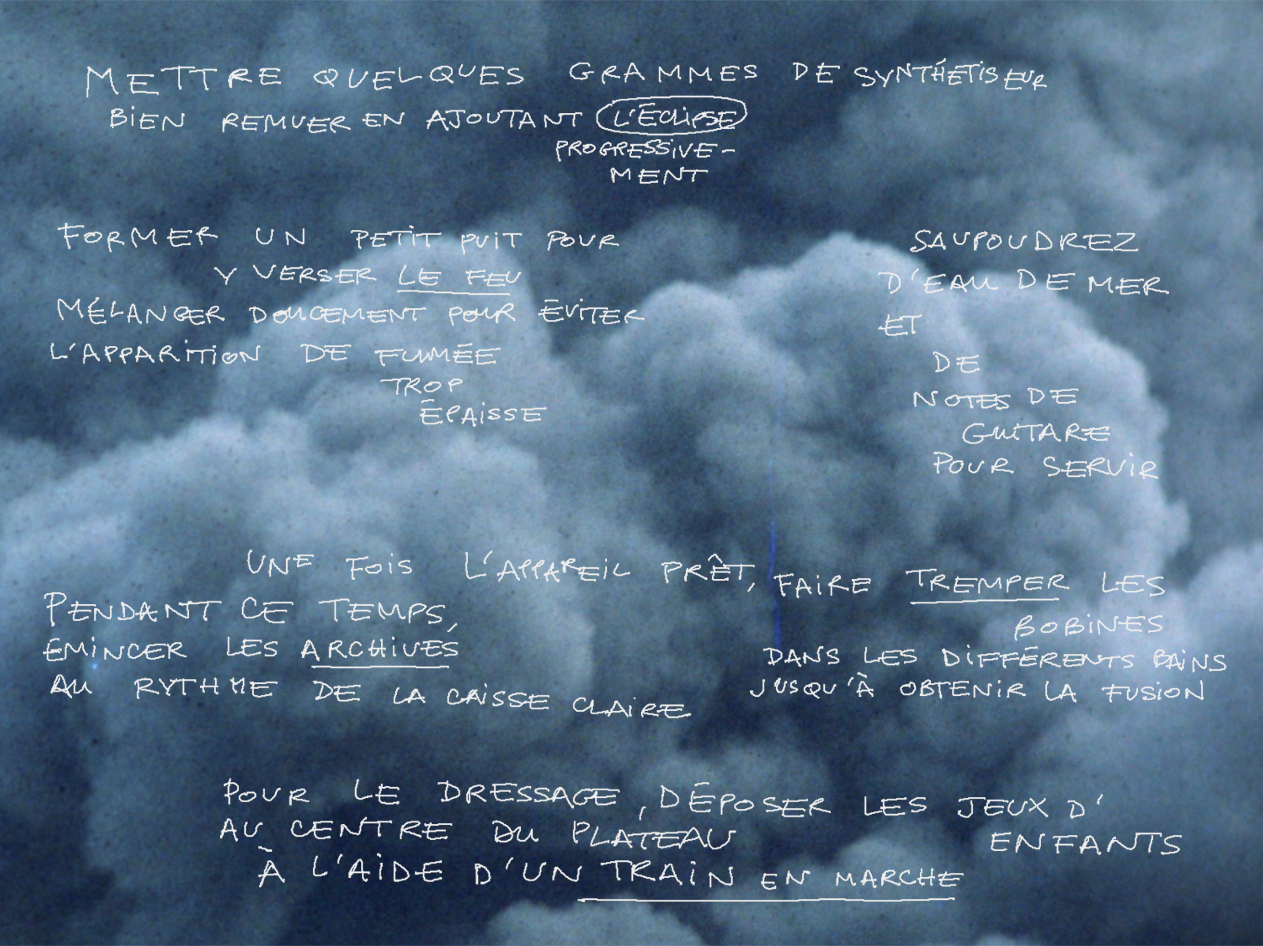 METTRE QUELQUES GRAMMES DE SYNTHÉTISEUR
BIEN REMUER EN AJOUTANT L'ÉCLIPSE
PROGRESSIVE-
MENT
FORMER UN PETIT PUIT POUR
Y VERSER LE FEU
MÉLANGER DOUCEMENT POUR ÉVITER
L'APPARITION DE FUMÉE
TROP
ÉPAISSE
SAUPOUDREZ
D'EAU DE MER
ET
DE
NOTES DE
GUITARE
POUR SERVIR
UNE FOIS L'APPAREIL PRÊT, FAIRE TREMPER LES
BOBINES
DANS LES DIFFÉRENTS BAINS
JUSQU'À OBTENIR LA FUSION
PENDANT CE TEMPS,
ÉMINCER LES ARCHIVES
AU RYTHME DE LA CAISSE CLAIRE
POUR LE DRESSAGE, DÉPOSER LES JEUX D'
ENFANTS
AU CENTRE DU PLATEAU
À L'AIDE D'UN TRAIN EN MARCHE